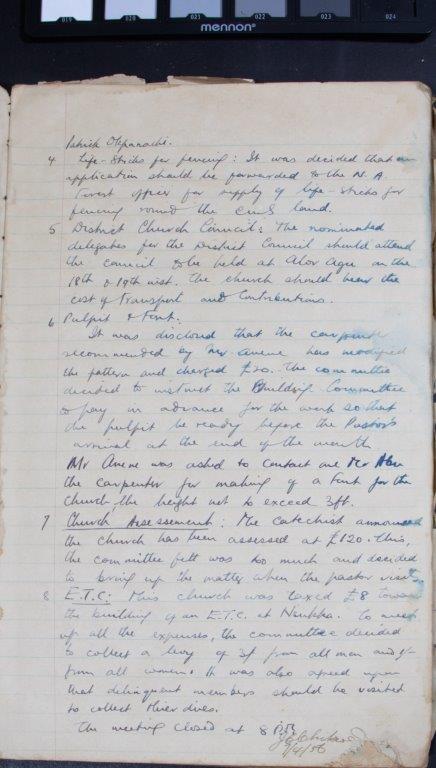 019 020 021 022 023 024
mennon®
Patrick Okpanachi.
4 Life-Sticks for fencing: It was decided that an
application should be forwarded to the N.A.
Forest officer for supply of life-sticks for
fencing round the C.M.S land.
5 District Church Council: The nominated
delegates for the District Council should attend
the council to be held at Alor Agu on the
18th & 19th inst. The church should bear the
cost of Transport and Contributions.
6 Pulpit & Font:
It was disclosed that the carpenter
recommended by Mr. Anene has modified
the pattern and charged £20. The committee
decided to instruct the Building Committee
to pay in advance for the work so that
the pulpit be ready before the Pastor's
arrival at the end of the month
Mr Anene was asked to contact one Mr
the carpenter for making of a Font for the
Church, the height not to exceed 3ft.
7 Church Assessment: The catechist announced
the church has been assessed at £120. This,
the committee felt was too much and decided
to bring up the matter when the pastor visits
8 E.T.C: This church was taxed £8 towards
the building of an E.T.C. at Nsukka. To meet
up all the expenses, the committee decided
to collect a levy of 3/- from all men and
from all women. It was also agreed upon
that delinquent members should be visited
to collect their dues.
The meeting closed at 8 P.M.
/4/56